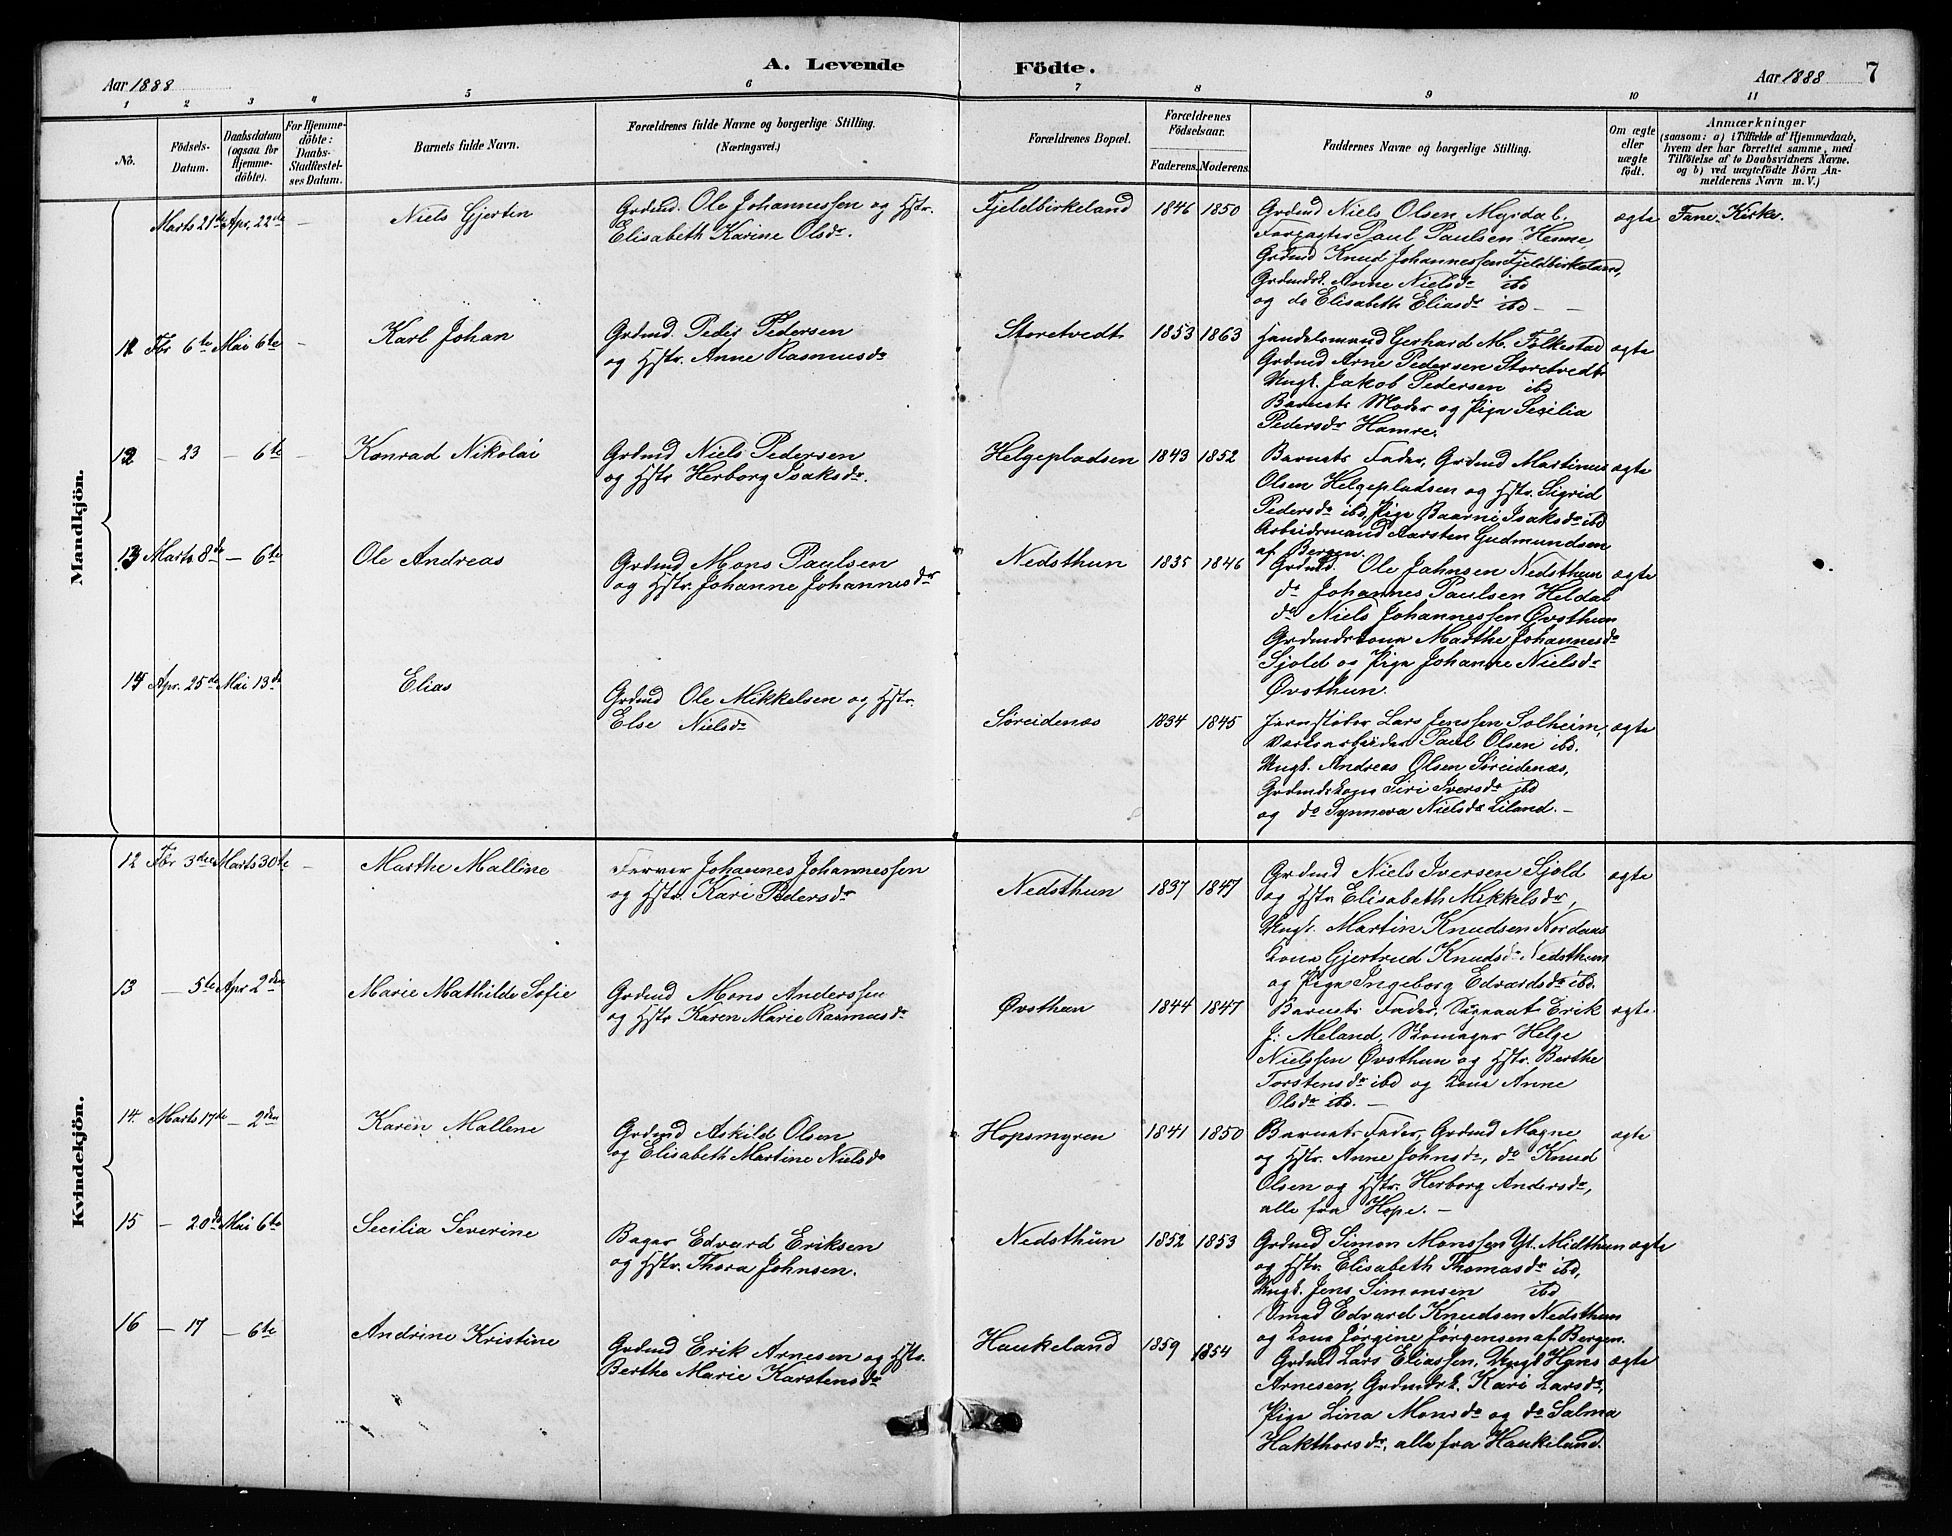 Aar 1888
A. Levende
Födte.
Aar 1888
7
1 2 3 4 5 6 7 8 9 10 11
No.
Födsels-
Datum.
Daabsdatum
(ogsaa for
Hjemme-
döbte).
For Hjemme-
döbte:
Daabs-
Stadfæstel-
ses Datum.
Barnets fulde Navn.
Forældrenes fulde Navne og borgerlige Stilling.
(Næringsvei.)
Forældrenes Bopæl.
Forældrenes
Födselsaar.
Faderens. Moderens.
Faddernes Navne og borgerlige Stilling.
Om ægte
eller
uægte
födt.
Anmærkninger
(saasom: a) i Tilfælde af Hjemmedaab,
hvem der har forrettet samme, med
Tilföielse af to Daabsvidners Navne.
og b) ved uægtefödte Börn An-
melderens Navn m. V.)
Mandkjön.
Marts 21de Apr. 22de – Niels Gjertin
Grdmd. Ole Johannessen og Hstr.
Elisabeth Karine Olsdr.
Fjeldbirkeland 1846 1850
Grdmd Niels Olsen Myrdal,
Forpagter Paul Paulsen Hemne
Grdmd Knud Johannessen Fjeldbirkeland,
Grdmdsk. Anne Nielsdr ibd
og do Elisabeth Eliasdr ibd –
ægte Fane Kirke.
11 Fbr 6te Mai 6te – Karl Johan
Grdmd. Peder Pedersen
og Hstr. Anne Rasmusdr
Storetvedt 1853 1863
Handelsmand Gerhard M. Folkestad
Grdmd Arne Pedersen Storetvedt
Ungk. Jakob Pedersen ibd
Barnets Moder og Pige Secilia
Pedersdr Hamre.
ægte
12 – 23 – 6te – Konrad Nikolai
Grdmd Niels Pedersen
og Hstr Herborg Isaksdr.
Helgepladsen 1843 1852
Barnets Fader, Grdmd Martinus
Olsen Helgepladsen og Hstr. Sigrid
Pedersdr ibd, Pige Baarni Isaksdr ibd
Arbeidsmand Karsten Gudmundsen
af Bergen.
ægte
13 Marts 8de – 6te Ole Andreas
Grdmd Mons Paulsen
og Hstr. Johanne Johannesdr
Nedsthun 1835 1846
Grdmd. Ole Jahnsen Nedsthun
do Johannes Paulsen Heldal
do Niels Johannessen Øvsthun
Grdmdskona Marthe Johannesdr
Sjold og Pige Johanne Nielsdr
Øvsthun.
ægte
Apr. 25de Mai 13de Elias
Grdmd Ole Mikkelsen og Hstr.
Else Nielsdr
Søreidenæs 1834 1845
Jernstøber Lars Jenssen Solheim,
Værksarbeider Paul Olsen ibd.
Ungk. Andreas Olsen Søreidenæs,
Grdmdskona Siri Iversdr ibd
og do Synneva Nielsdr Liland. –
ægte
Kvindekjön.
12 Fbr 3die Marts 30te – Marthe Malline
Farver Johannes Johannessen
og Hstr. Kari Pedersdr
Nedsthun 1837 1847
Grdmd Niels Iversen Sjold
og Hstr Elisabeth Mikkelsdr,
Ungk. Martin Knudsen Nordaas
Kona Gjertrud Knudsdr Nedsthun
og Pige Ingeborg Edvardsdr ibd.
ægte
13 – 5te Apr 2den Marie Mathilde Sofie
Grdmd Mons Anderssen
og Hstr Karen Marie Rasmusdr
Øvsthun 1844 1847
Barnets Fader, Vognat Erik
J. Meland, Skomager Helge
Nielssen Øvsthun og Hstr. Berthe
Torstensdr ibd og Kona Anne
Olsdr ibd. –
ægte.
14. Marts 17de – 2den Karen Mallene
Grdmd Askild Olsen
og Elisabeth Martine Nielsdr
Hopsmyren 1841 1850
Barnets Fader, Grdmd Magne
og Hstr. Anne Johnsdr, do Knud
Olsen og Hstr. Herborg Andersdr,
alle fra Hope. –
ægte
15 – 20de Mai 6te Secilia Severine
Bager Edvard Eriksen
og Hstr. Thora Johnsen.
Nedsthun 1852 1853
Grdmd Simon Monssen Yt. Midthun
og Hstr. Elisabeth Thomasdr ibd,
Ungk. Jens Simonsen ibd
Smed Edvard Knudsen Nedsthun
og Kona Jørgine Jørgensen af Bergen.
ægte
16 – 17 – 6te Andrine Kristine
Grdmd Erik Arnesen og Hstr.
Berthe Marie Karstensdr
Haukeland 1859 1854
Grdmd Lars Eliassen, Ungk Hans
Arnesen, Grdmdsk. Kari Larsdr,
Pige Lina Monsdr og do Salma
Hakthorsdr, alle fra Haukeland.
ægte